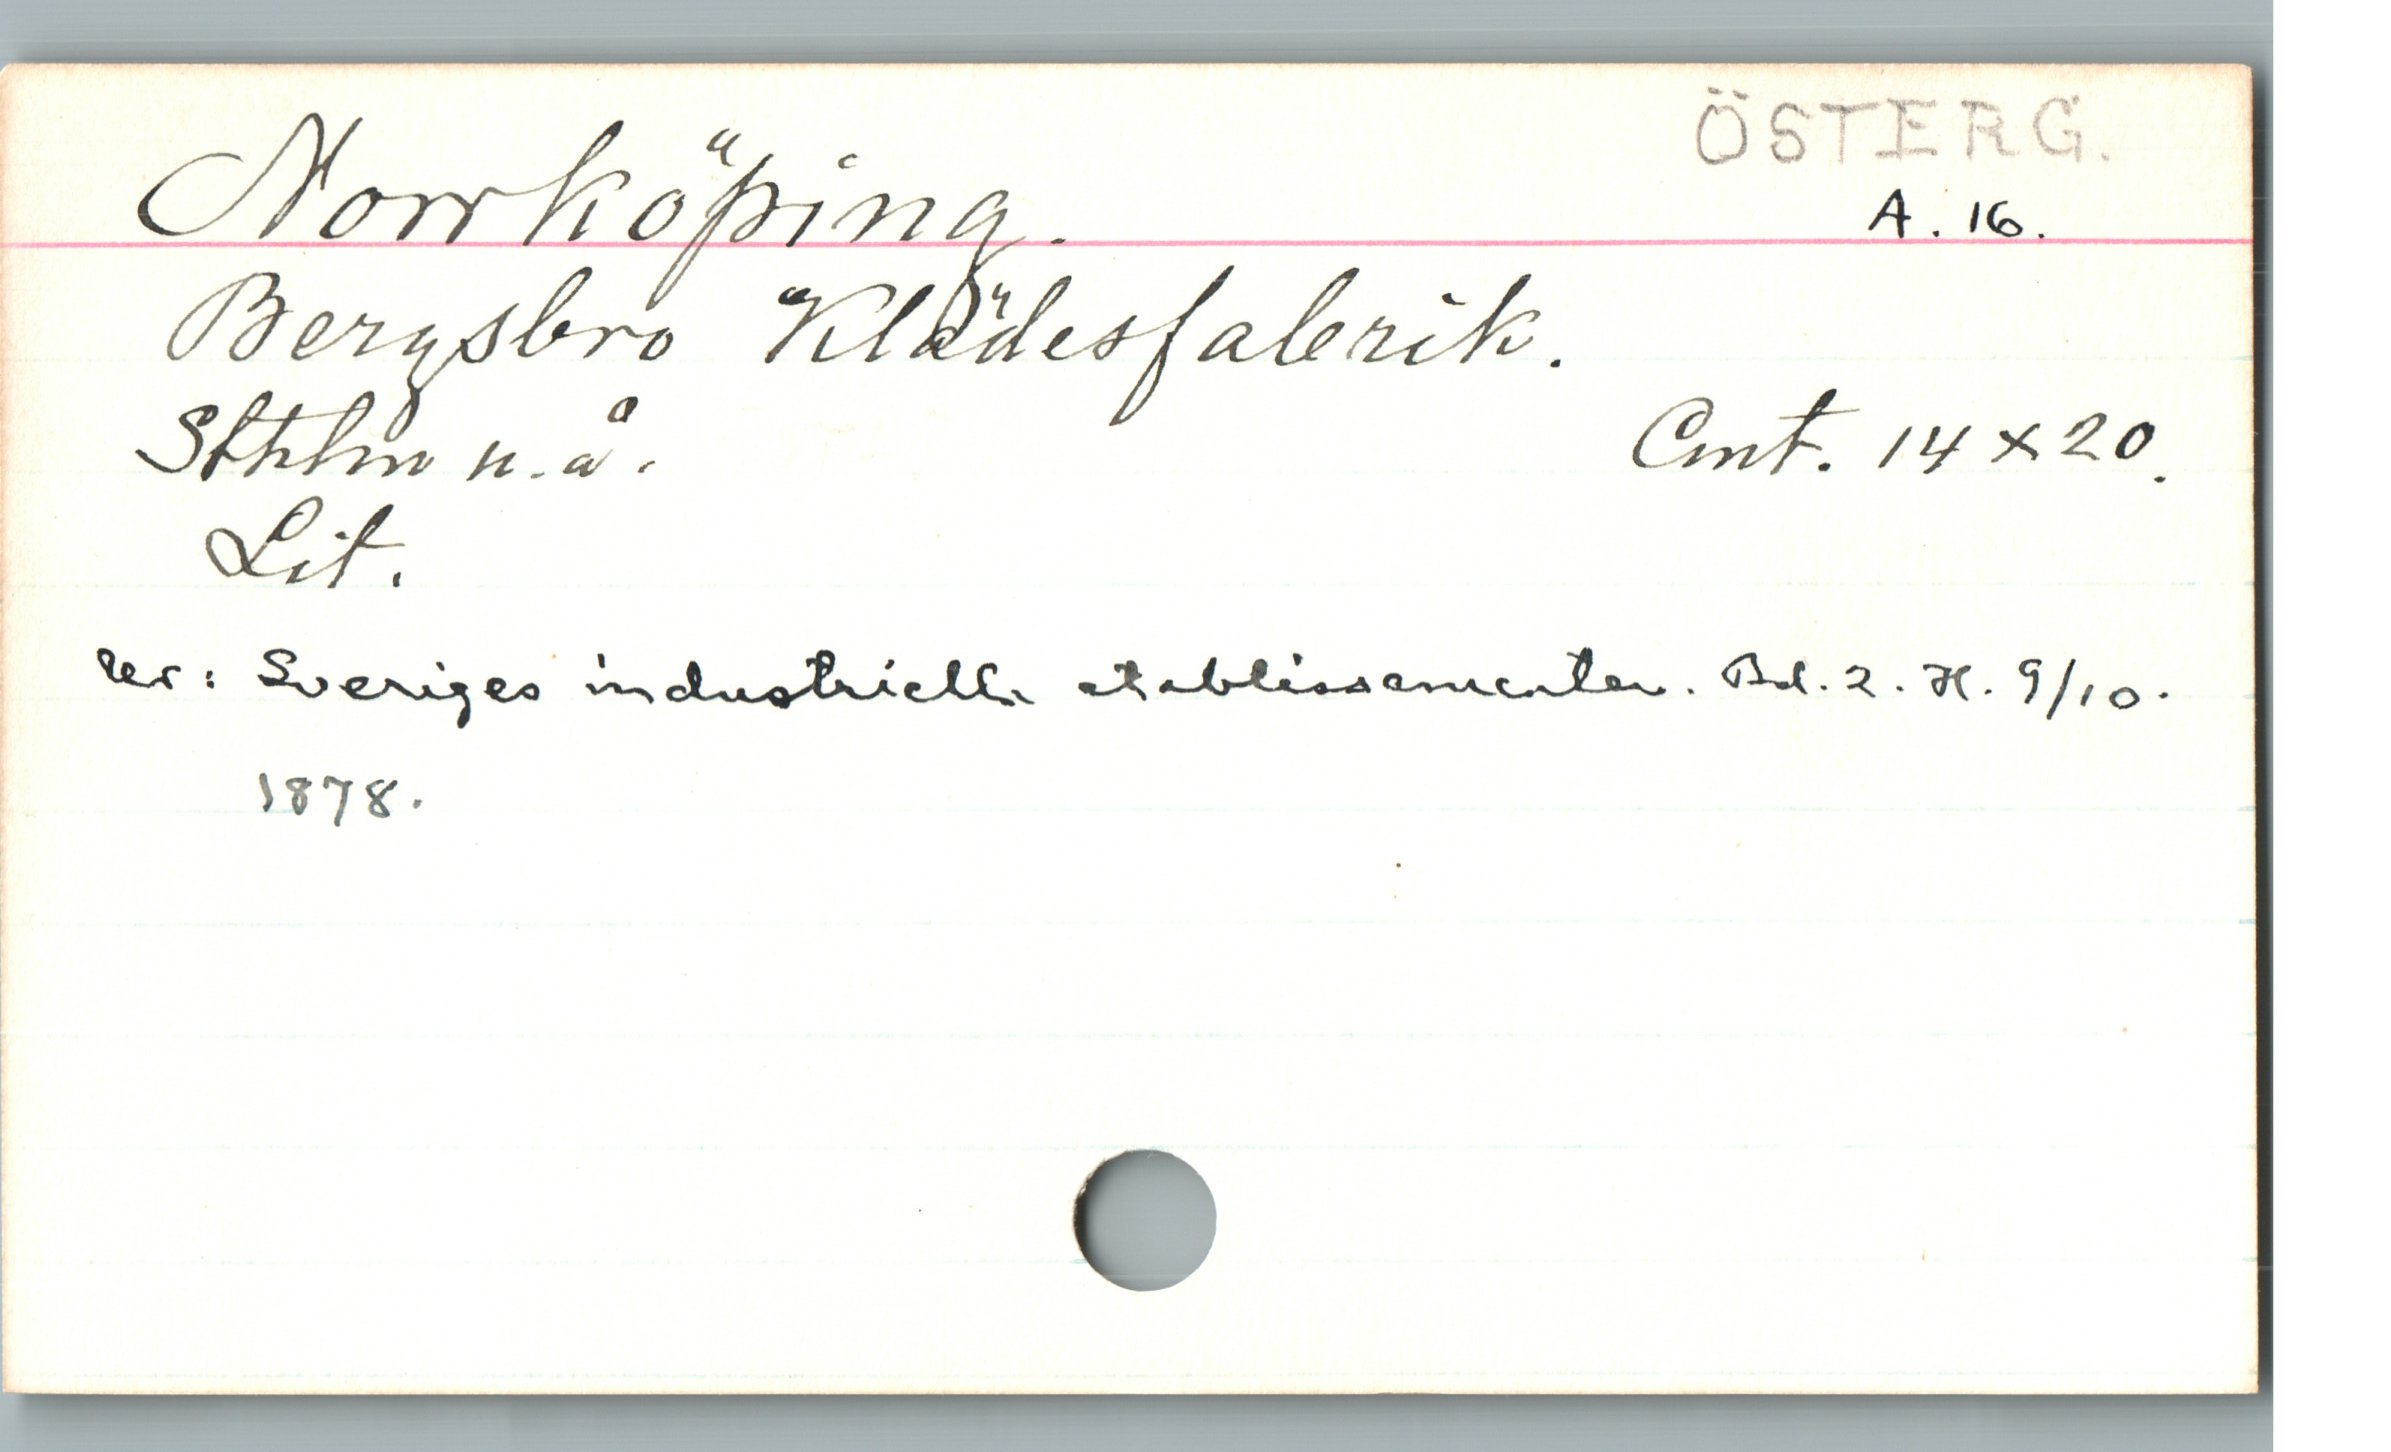 ÖSTERG.
Norrköping.
A. 16.
Bergsbro Klädesfabrik.
Sthlm u.å.
Cmt. 14 x 20.
Lit.
ur: Sveriges industriella etablissementer. Bd. 2. H. 9/10.
1878.